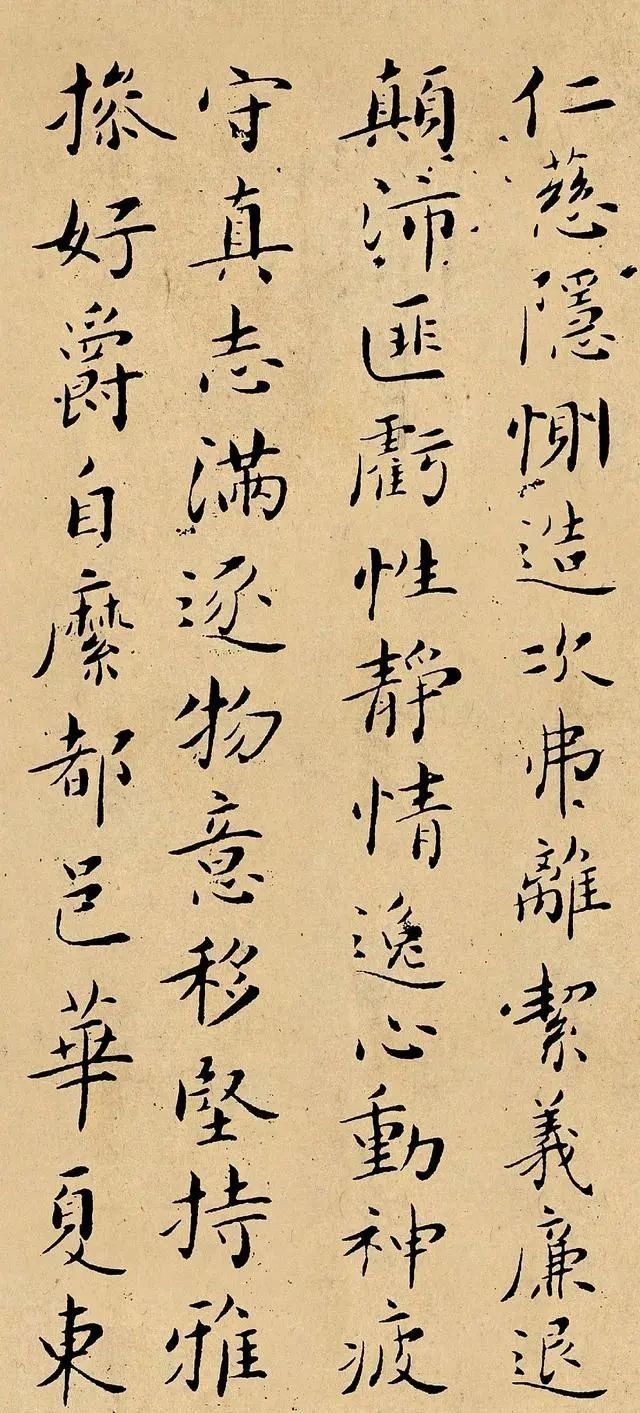 仁慈隱惻造次弗離絜義廉退
顛沛匪虧性靜情逸心動神疲
守真志滿逐物意移堅持雅
操好爵自縻都邑華夏東